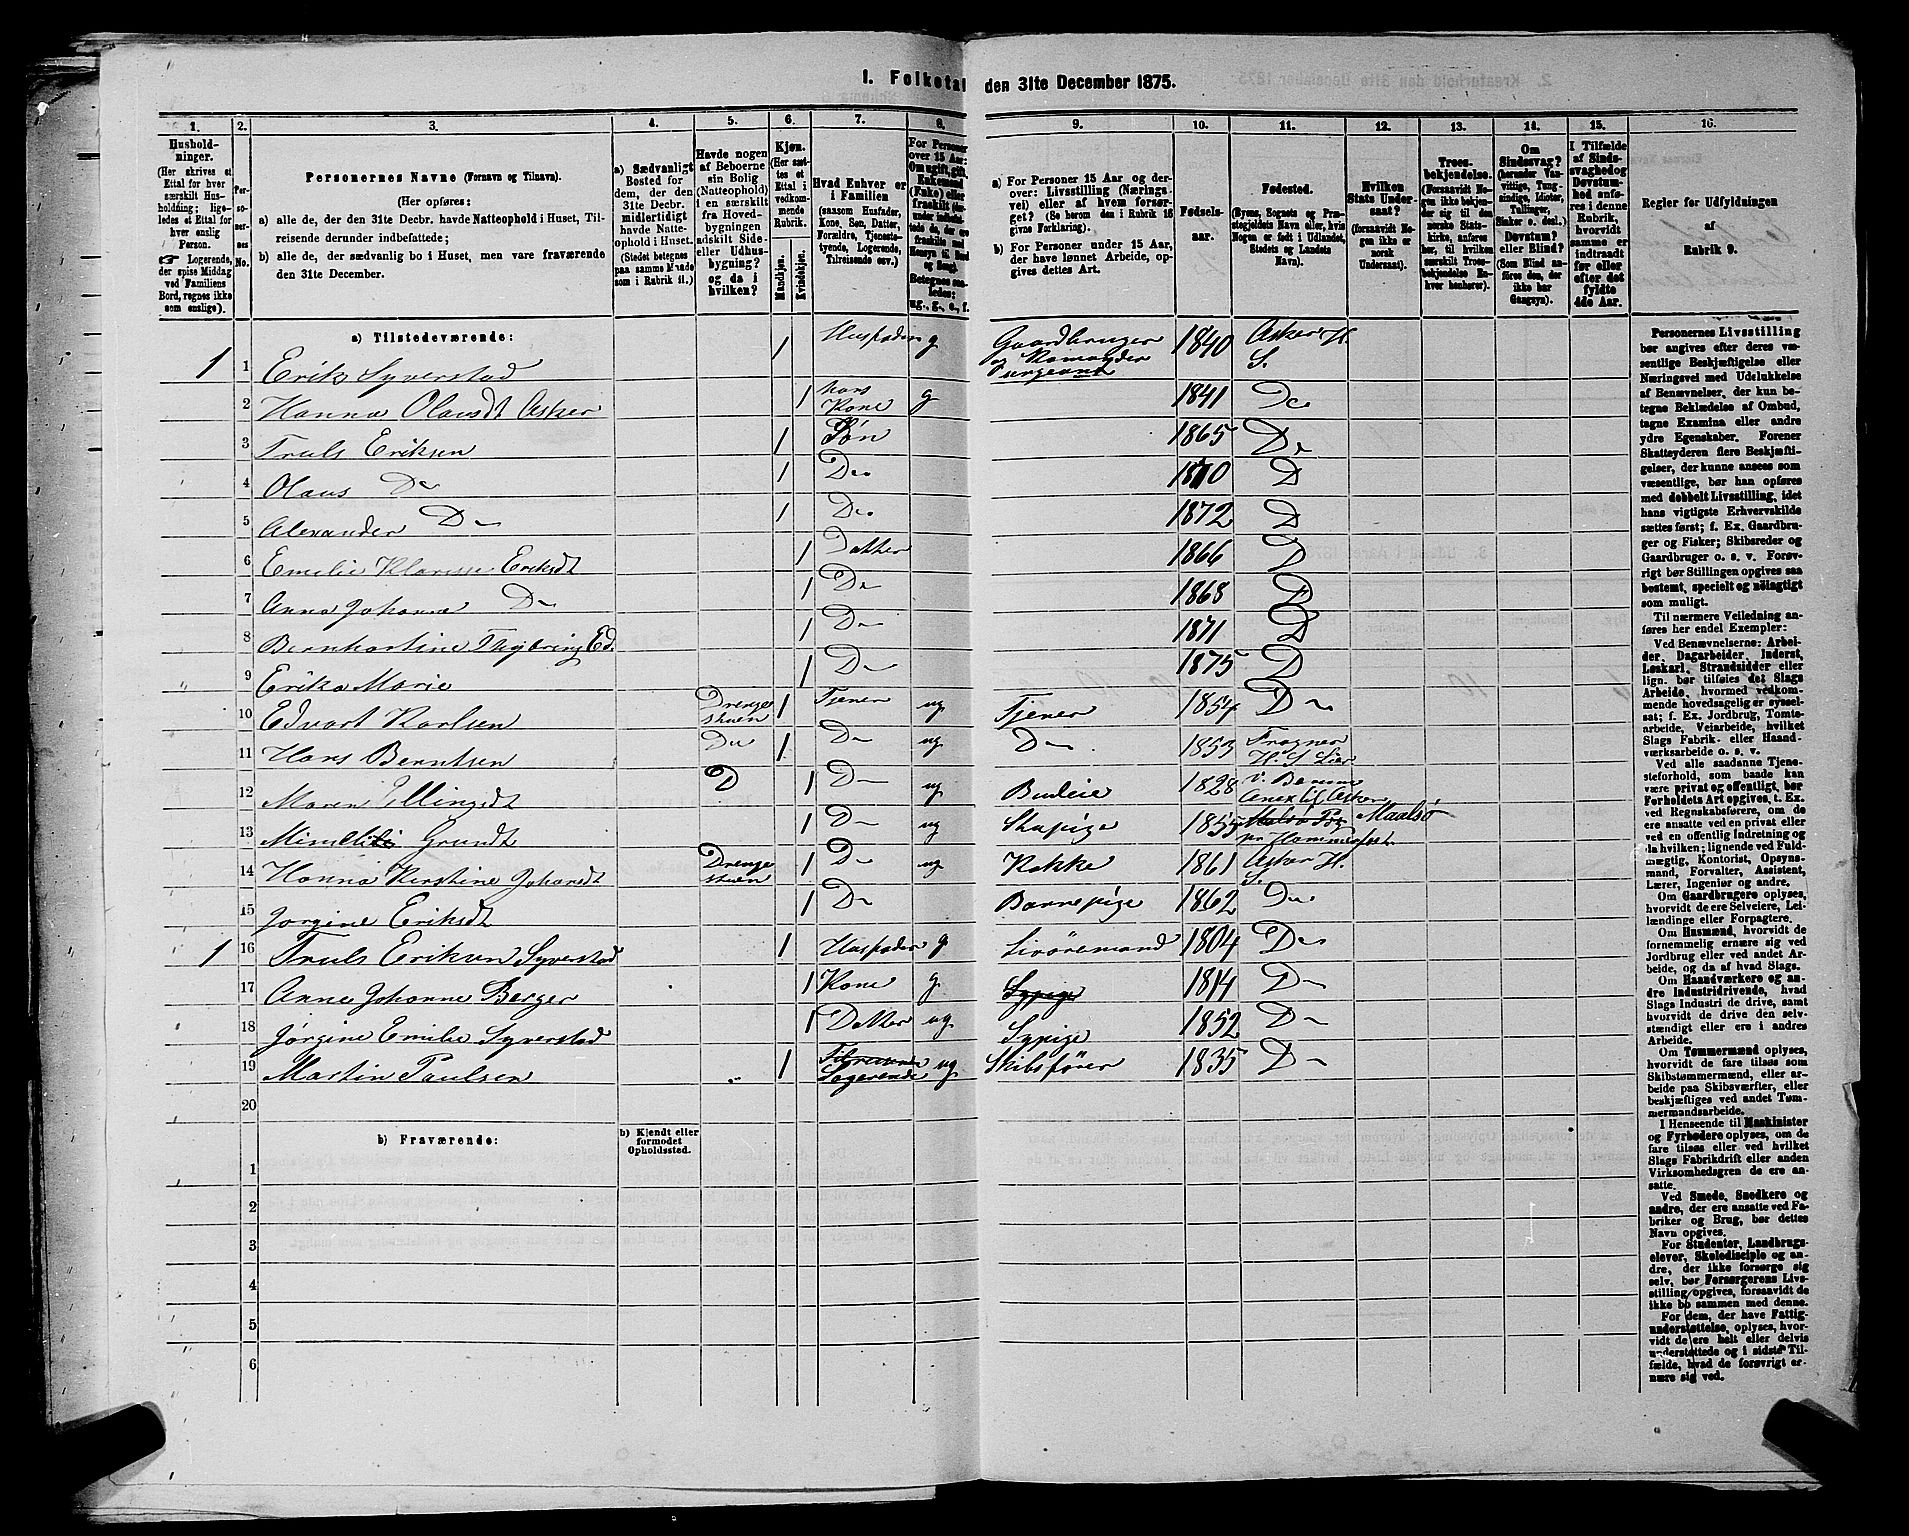 I. Folketal den 31te December 1875.
1. 2. 3. 4. 5. 6. 7. 8. 9. 10. 11. 12. 13. 14. 15. 16.
Husholdninger.
(Her skrives et
Ettal for hver
særskilt Husholdning;
ligeledes et Ettal for
hver enslig
Person.
☞ Logerende,
der spise Middag
ved Familiens
Bord, regnes ikke
som enslige).
Personernes No.
Personernes Navne (Fornavn og Tilnavn).
(Her opføres:
a) alle de, der den 31te Decbr. havde Natteophold i Huset, Tilreisende derunder indbefattede;
b) alle de, der sædvanlig bo i Huset, men vare fraværende den 31te December.
a) Sædvanligt
Bosted for
dem, der den
31te Decbr.
midlertidigt
havde Natteophold
i Huset.
(Stedet betegnes
paa samme Maade
som i Rubrik 11.)
Havde nogen
af Beboerne
sin Bolig
(Natteophold)
i en særskilt
fra Hovedbygningen
adskilt Side-
eller Udhusbygning?
og da i
hvilken?
Kjøn.
(Her sættes
et
Ettal i
vedkommende
Rubrik.
Mandkjøn.
Kvindekjøn.
Hvad Enhver er
i Familien
(saasom Husfader,
Kone, Søn, Datter,
Forældre, Tjenestetyende,
Logerende,
Tilreisende osv.)
For Personer
over 15 Aar:
Om ugift, gift,
Enkemand
(Enke) eller
fraskilt
Betegnes saaledes:
ug., g., e., f.
a) For Personer 15 Aar og derover: Livsstilling (Næringsvei) eller af hvem forsørget? (Se herom den i Rubrik 16 givne Forklaring).
b) For Personer under 15 Aar, der have lønnet Arbeide, opgives dettes Art.
Fødselsaar.
Fødested.
(Byens, Sognets og Præstegjeldets Navn eller, hvis Nogen er født i Udlandet, Stedets og Landets Navn).
Hvilken
Stats Undersaat?
(forsaavidt Nogen
ikke er
norsk
Undersaat).
Troesbekjendelse.
(Forsaavidt Nogen
ikke bekjender
sig til den
norske Statskirke,
anføres
her, til hvilken
særskilt Troesbekjendelse
Enhver
henhører).
Om
Sindssvag?
(herunder Vanvittige,
Tungsindige,
Idioter,
Tullinger,
Sinker o. desl.)
Døvstum?
eller Blind?
(Som Blind anføres
den, der
ikke har
Gangsyn).
I Tilfælde
af Sindssvaghed
og
Døvstumhed
anføres
i denne
Rubrik,
hvorvidt
samme er
indtraadt
før eller
efter det
fyldte
4de Aar.
Regler for Udfyldningen
af
Rubrik 9.
a) Tilstedeværende:
1 1 Erik Syverstad 1 Husfader g Gaardbruger og Komandersergeant 1840 Asker H. S.
2 Hanna Olausdt Asker 1 hans Kone g 1841 Do
3 Truls Eriksen 1 Søn 1865 Do
4 Olaus Do 1 Do 1870 D
5 Alexander Do 1 Do 1872 D
6 Emelie Klarisse Eriksdt 1 Datter 1866 D
7 Anna Johanne Do 1 Do 1868 D
8 Bernhartine Ingbring Ed. 1 Do 1871 D
9 Erika Marie 1 Do 1875 D
10 Edvart Karlsen Drengestuen 1 Tjener ug Tjener 1854 Do
11 Hans Berntsen Do 1 Do ug Do 1853 Frogner H. S. Lier
12 Maren Ellingsdt D 1 Do ug Budeie 1828 v. Bærum Anex til Asker
13 Grundt 1 Do ug Stupige 1855 Maalsø pr Hammerfest
14 Hanna Kirstine Johansdt Drengestuen 1 Do ug Kokke 1861 Asker H. S.
15 Jorgine Eriksdt 1 Do Barnepige 1862 Do
1 16 Truls Eriksen Syverstad 1 Husfader g Livøremand 1804 Do
17 Anne Johanne Berger 1 Kone g Sypige 1814 Do
18 Jørgine Emilie Syverstad 1 Datter ug Sypige 1852 Do
19 Martin Paulsen 1 Tilreisende Logerende ug Skibsfører 1835 Do
20
b) Fraværende:
b) Kjendt eller
formodet
Opholdssted.
1
2
3
4
5
6
Personernes Livsstilling
bør angives efter deres væsentlige
Beskjæftigelse eller
Næringsvei med Udelukkelse
af Benævnelser, der kun betegne
Beklædelse af Ombud,
tagne Examina eller andre
ydre Egenskaber. Forener
Skatteyderen flere Beskjæftigelser,
der kunne ansees som
væsentlige, bør han opføres
med dobbelt Livsstilling, idet
hans vigtigste Erhvervskilde
sættes først; f. Ex. Gaardbruger
og Fisker; Skibsreder og
Gaardbruger o. s. v. Forøvrigt
bør Stillingen opgives saa
bestemt, specielt og nøiagtigt
som muligt.
Til nærmere Veiledning anføres
her endel Exempler:
Ved Benævnelserne: Arbeider,
Dagarbeider, Inderst,
Løskarl, Strandsidder eller
lign. bør tilføies det Slags
Arbeide, hvormed vedkommende
hovedsagelig er sysselsat;
f. Ex. Jordbrug, Tomtearbeide,
Veiarbeide, hvilket
Slags Fabrik- eller Haandværksarbeide
o. s. v.
Ved alle saadanne Tjenesteforhold,
som baade kan
være privat og offentligt, bør
Forholdets Art opgives, t. Ex.
ved Regnskabsførere, om de
ere ansatte ved en privat eller
ved en offentlig Indretning og
da hvilken; lignende ved Fuldmægtig,
Kontorist, Opsynsmand,
Forvalter, Assistent,
Lærer, Ingeniør og andre.
Om Gaardbrugere oplyses,
hvorvidt de ere Selveiere, Leilændinge
eller Forpagtere.
Om Husmænd, hvorvidt de
fornemmelig ernære sig ved
Jordbrug eller ved andet Arbeide,
og da af hvad Slags.
Om Haandværkere og andre
Industridrivende, hvad
Slags Industri de drive, samt
hvorvidt de drive den selvstændigt
eller ere i andres
Arbeide.
Om Tømmermænd oplyses,
hvorvidt de fare tilsøs som
Skibstømmermænd, eller arbeide
paa Skibsværfter, eller
beskjæftiges ved andet Tømmermandsarbeide.
I Henseende til Maskinister
og Fyrbødere oplyses, om de
fare tilsøs eller ved hvilket
Slags Fabrikdrift eller anden
Virksomhedsgren de ere ansatte.
Ved Smede, Snedkere og
andre, der ere ansatte ved Fabriker
og Brug, bør dettes
Navn opgives.
For Studenter, Landbrugselever,
Skoledisciple og andre,
der ikke forsørge sig
selv, bør Forsørgerens Livsstilling
opgives, forsaavidt de
ikke bo sammen med denne.
For dem, der have Fattigunderstøttelse,
oplyses, hvorvidt
de ere helt eller delvis
understøttede og i sidste Tilfælde,
hvad de forøvrigt ernære
sig ved.